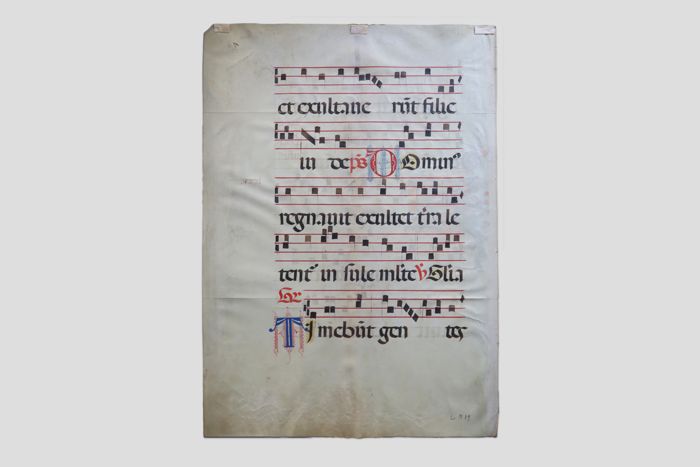 et exultaue rūt filie
iu de ps Dominᵘˢ
regnauit exultet tr̄ra le
tent' in sule ml̄te ꝟ Gl̄ia
Gr
Timebūt gen tes